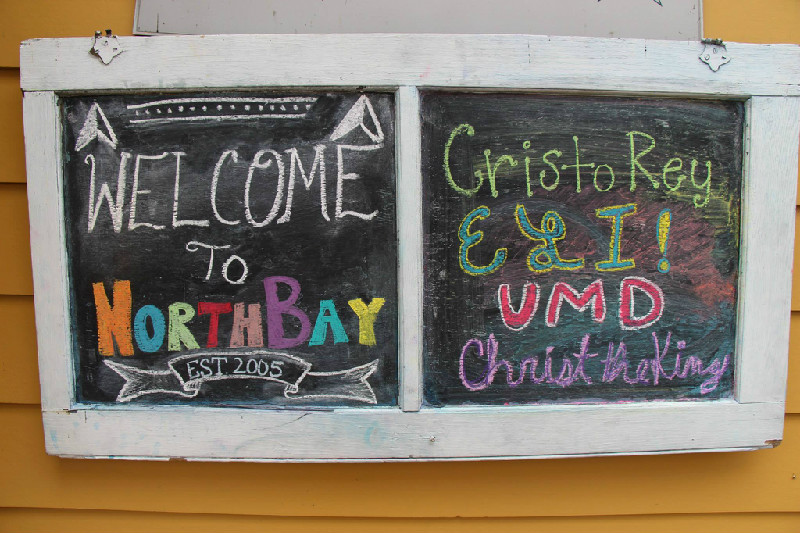 WELCOME
TO
NORTHBAY
EST. 2005
Cristo Rey
ELI!
UMD
Christ the King